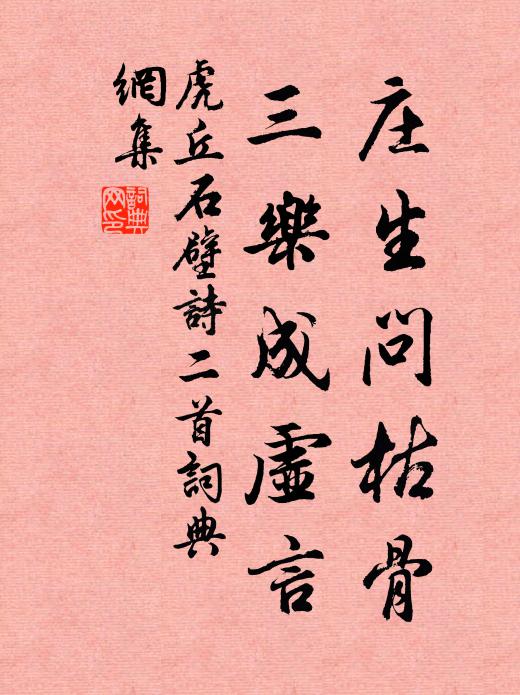 庄生问枯骨
三樂成虛言
虎丘石壁詩二首詞典
網集
詞典
网印